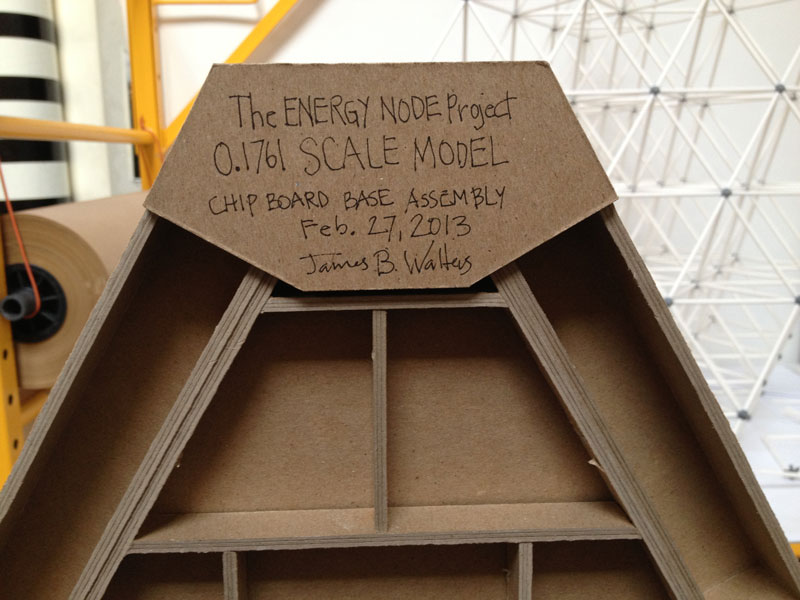 The ENERGY NODE Project
0.1761 SCALE MODEL
CHIP BOARD BASE ASSEMBLY
Feb. 27, 2013
James B. Walters